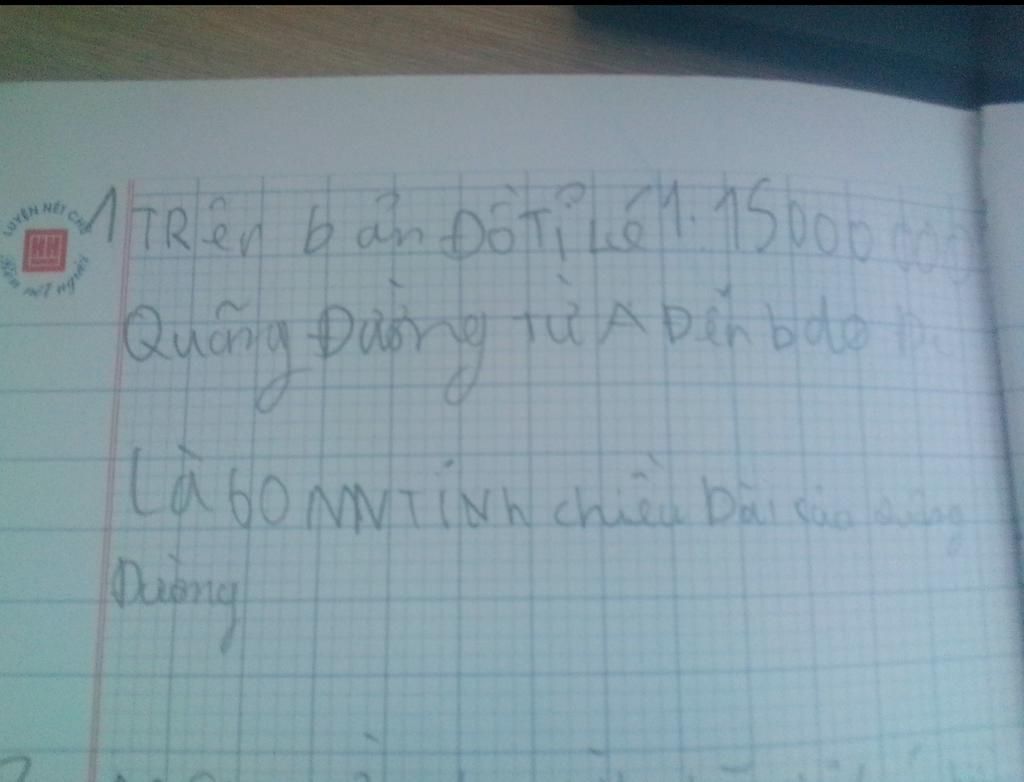 LUYỆN NÉT CHỮ
HH
Rèn nết người
1 TRên bản ĐồTỉ Lé 1: 15000 000
Quãng Đường Từ A Đến b đo
Là 60 NNTíNh chiều Dài của quãng
Đường